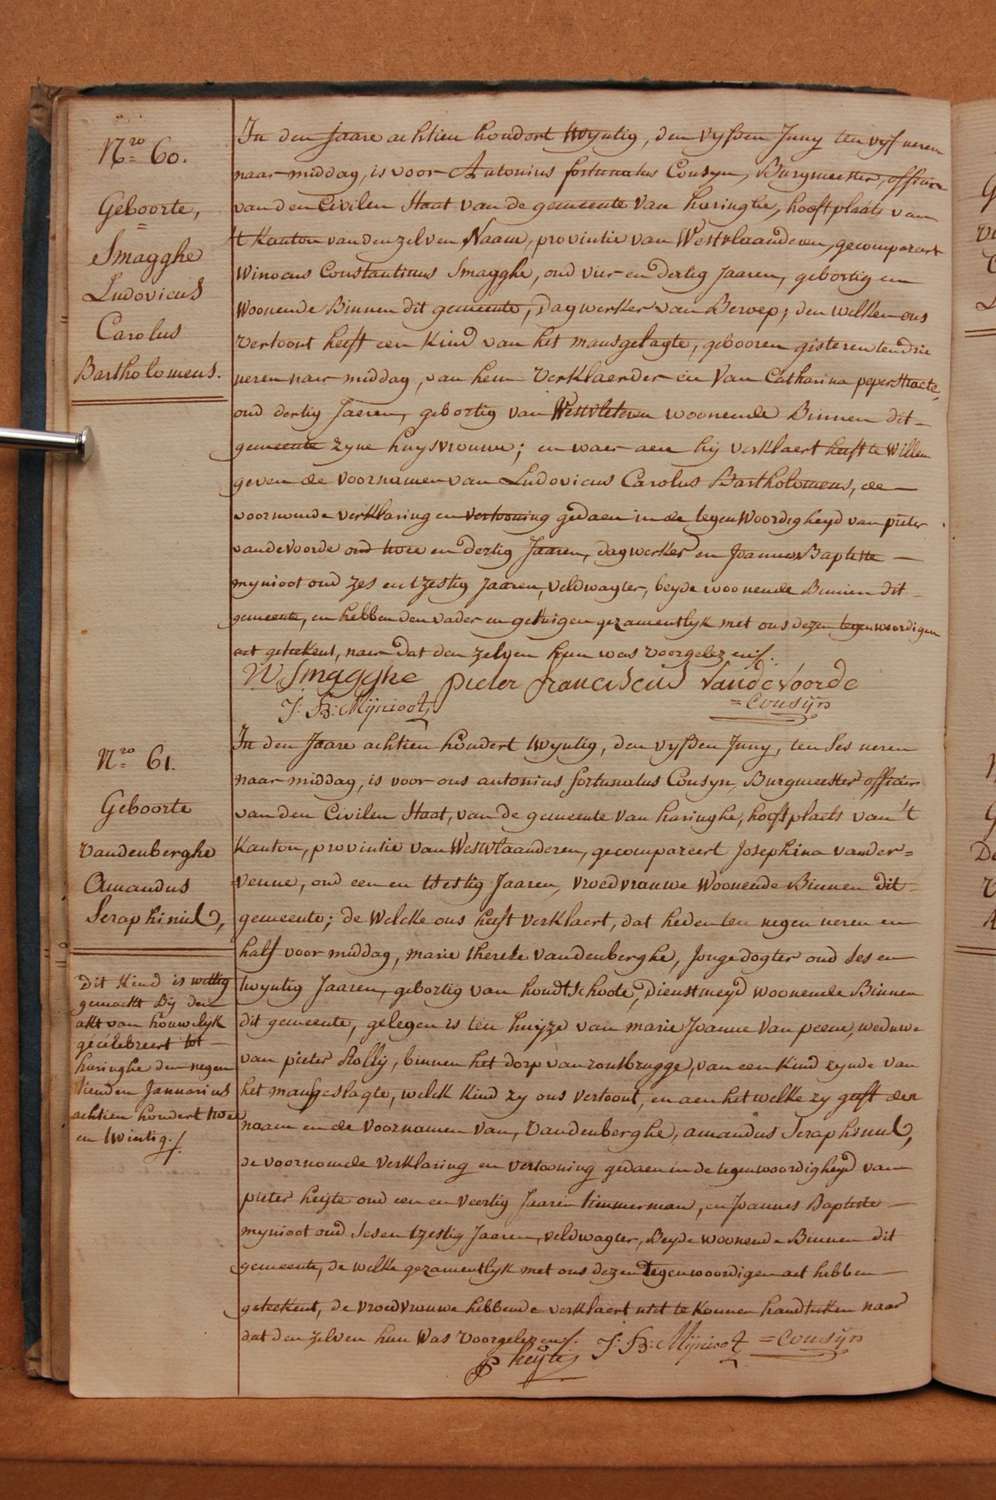 Nro 60.
Geboorte,
Smagghe
Ludovicus
Carolus
Bartholomeus.
In den Jaare achtien hondert twyntig, den vyfden Juny ten vyf ueren
naar middag, is voor Antonius fortunatus Cousyn, Burgmeester, officier
van den Civilen Staat van de gemeente van haringhe, hooftplaets van
't Kanton van den zelven Naam, provintie van Westvlaanderen, gecompareert
Winocus Constantinus Smagghe, oud vier en dertig Jaaren, gebortig en
Woonende Binnen dit gemeente, Dagwerker van Beroep; den welken ons
Vertoont heeft een Kind van het mansgeslagte, gebooren gisteren ten drie
ueren naar middag, van hem Verklaerder en Van Catharina peperstraete,
oud dertig Jaeren, gebortig van Westvleteren woonende Binnen dit
gemeente zyne huysvrouwe; en waer aen hij verklaert heeft te Willen
geven de voornamen van Ludovicus Carolus Bartholomeus, de
voornoemde verklaring en vertooning gedaen in de tegenwoordigheyd van pieter
vandevoorde oud twee en dertig Jaaren, dagwerker en Joannes Baptiste
mynioot oud zes en tzestig Jaaren, veldwagter, beyde woonende Binnen dit
gemeente, en hebben den vader en getuigen gezamentlyk met ons dezen tegenwoordigen
act geteekent, naer dat den zelven hun was voorgelezen/.
W Smagghe pieter franciscus Vandevoorde
J: B: Mijnioot =Cousijn
Nro 61.
Geboorte
Vandenberghe
Amandus
Seraphinus,
In den Jaare achtien hondert twyntig, den vyfden Juny, ten ses ueren
naar middag, is voor ons antonius fortunatus Cousyn, Burgmeester officier
van den Civilen Staat, van de gemeente van haringhe, hooftplaets van 't
Kanton, provintie van Westvlaanderen, gecompareert Josephina vander=
venne, oud een en tsestig Jaaren, Vroedvrauwe Woonende Binnen dit
gemeente; de Welcke ons heeft verklaert, dat heden ten negen ueren en
half voor middag, marie therese Vandenberghe, Jongedogter oud ses en
twyntig Jaaren, gebortig van houdtschoote, Dienstmeyd woonende Binnen
dit gemeente, gelegen is ten huyze van marie Joanne Van peene, weduwe
van pieter Rolly, binnen het dorp van rousbrugge, van een Kind zynde van
het mansgeslagte, welck Kind zy ons vertoont, en aen het welke zy geeft den
naam en de voornamen van, Vandenberghe, amandus Seraphinus,
de voornoemde verklaring en vertooning gedaen in de tegenwoordigheyd van
pieter heyte oud een en veertig Jaaren timmerman, en Joannes Baptiste
mynioot oud ses en tzestig Jaaren, veldwagter, Beyde woonende Binnen dit
gemeente, de welke gezamentlyk met ons dezen tegenwoordigen act hebben
geteekent, de vroedvrouwe hebbende verklaert niet te konnen handteken naar
dat den zelven hun Was voorgelezen/.
P heijte J: B: Mijnioot =Cousijn
Dit Kind is wettig
gemaekt Bij den
akt van houwelijk
gecelebreert tot
haringhe den negen
tienden Januarius
achtien hondert twee
en twintig./.